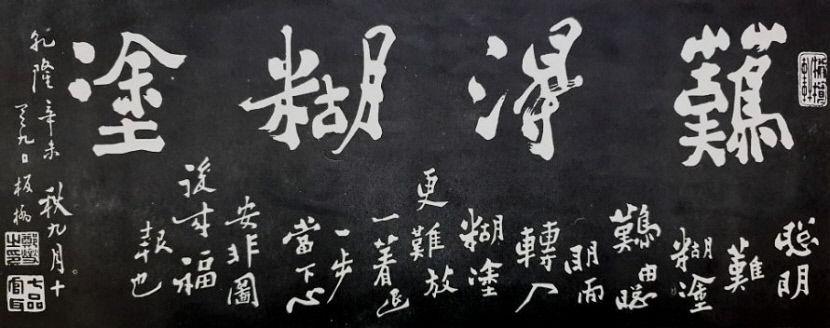 難得糊塗
聰明
難
糊塗
難由聰
明而
轉入
糊塗
更難放
一着退
一步
當下心
安非圖
後來福
報也
乾隆辛未秋九月十
又九日板橋
鄭燮之印
七品官耳